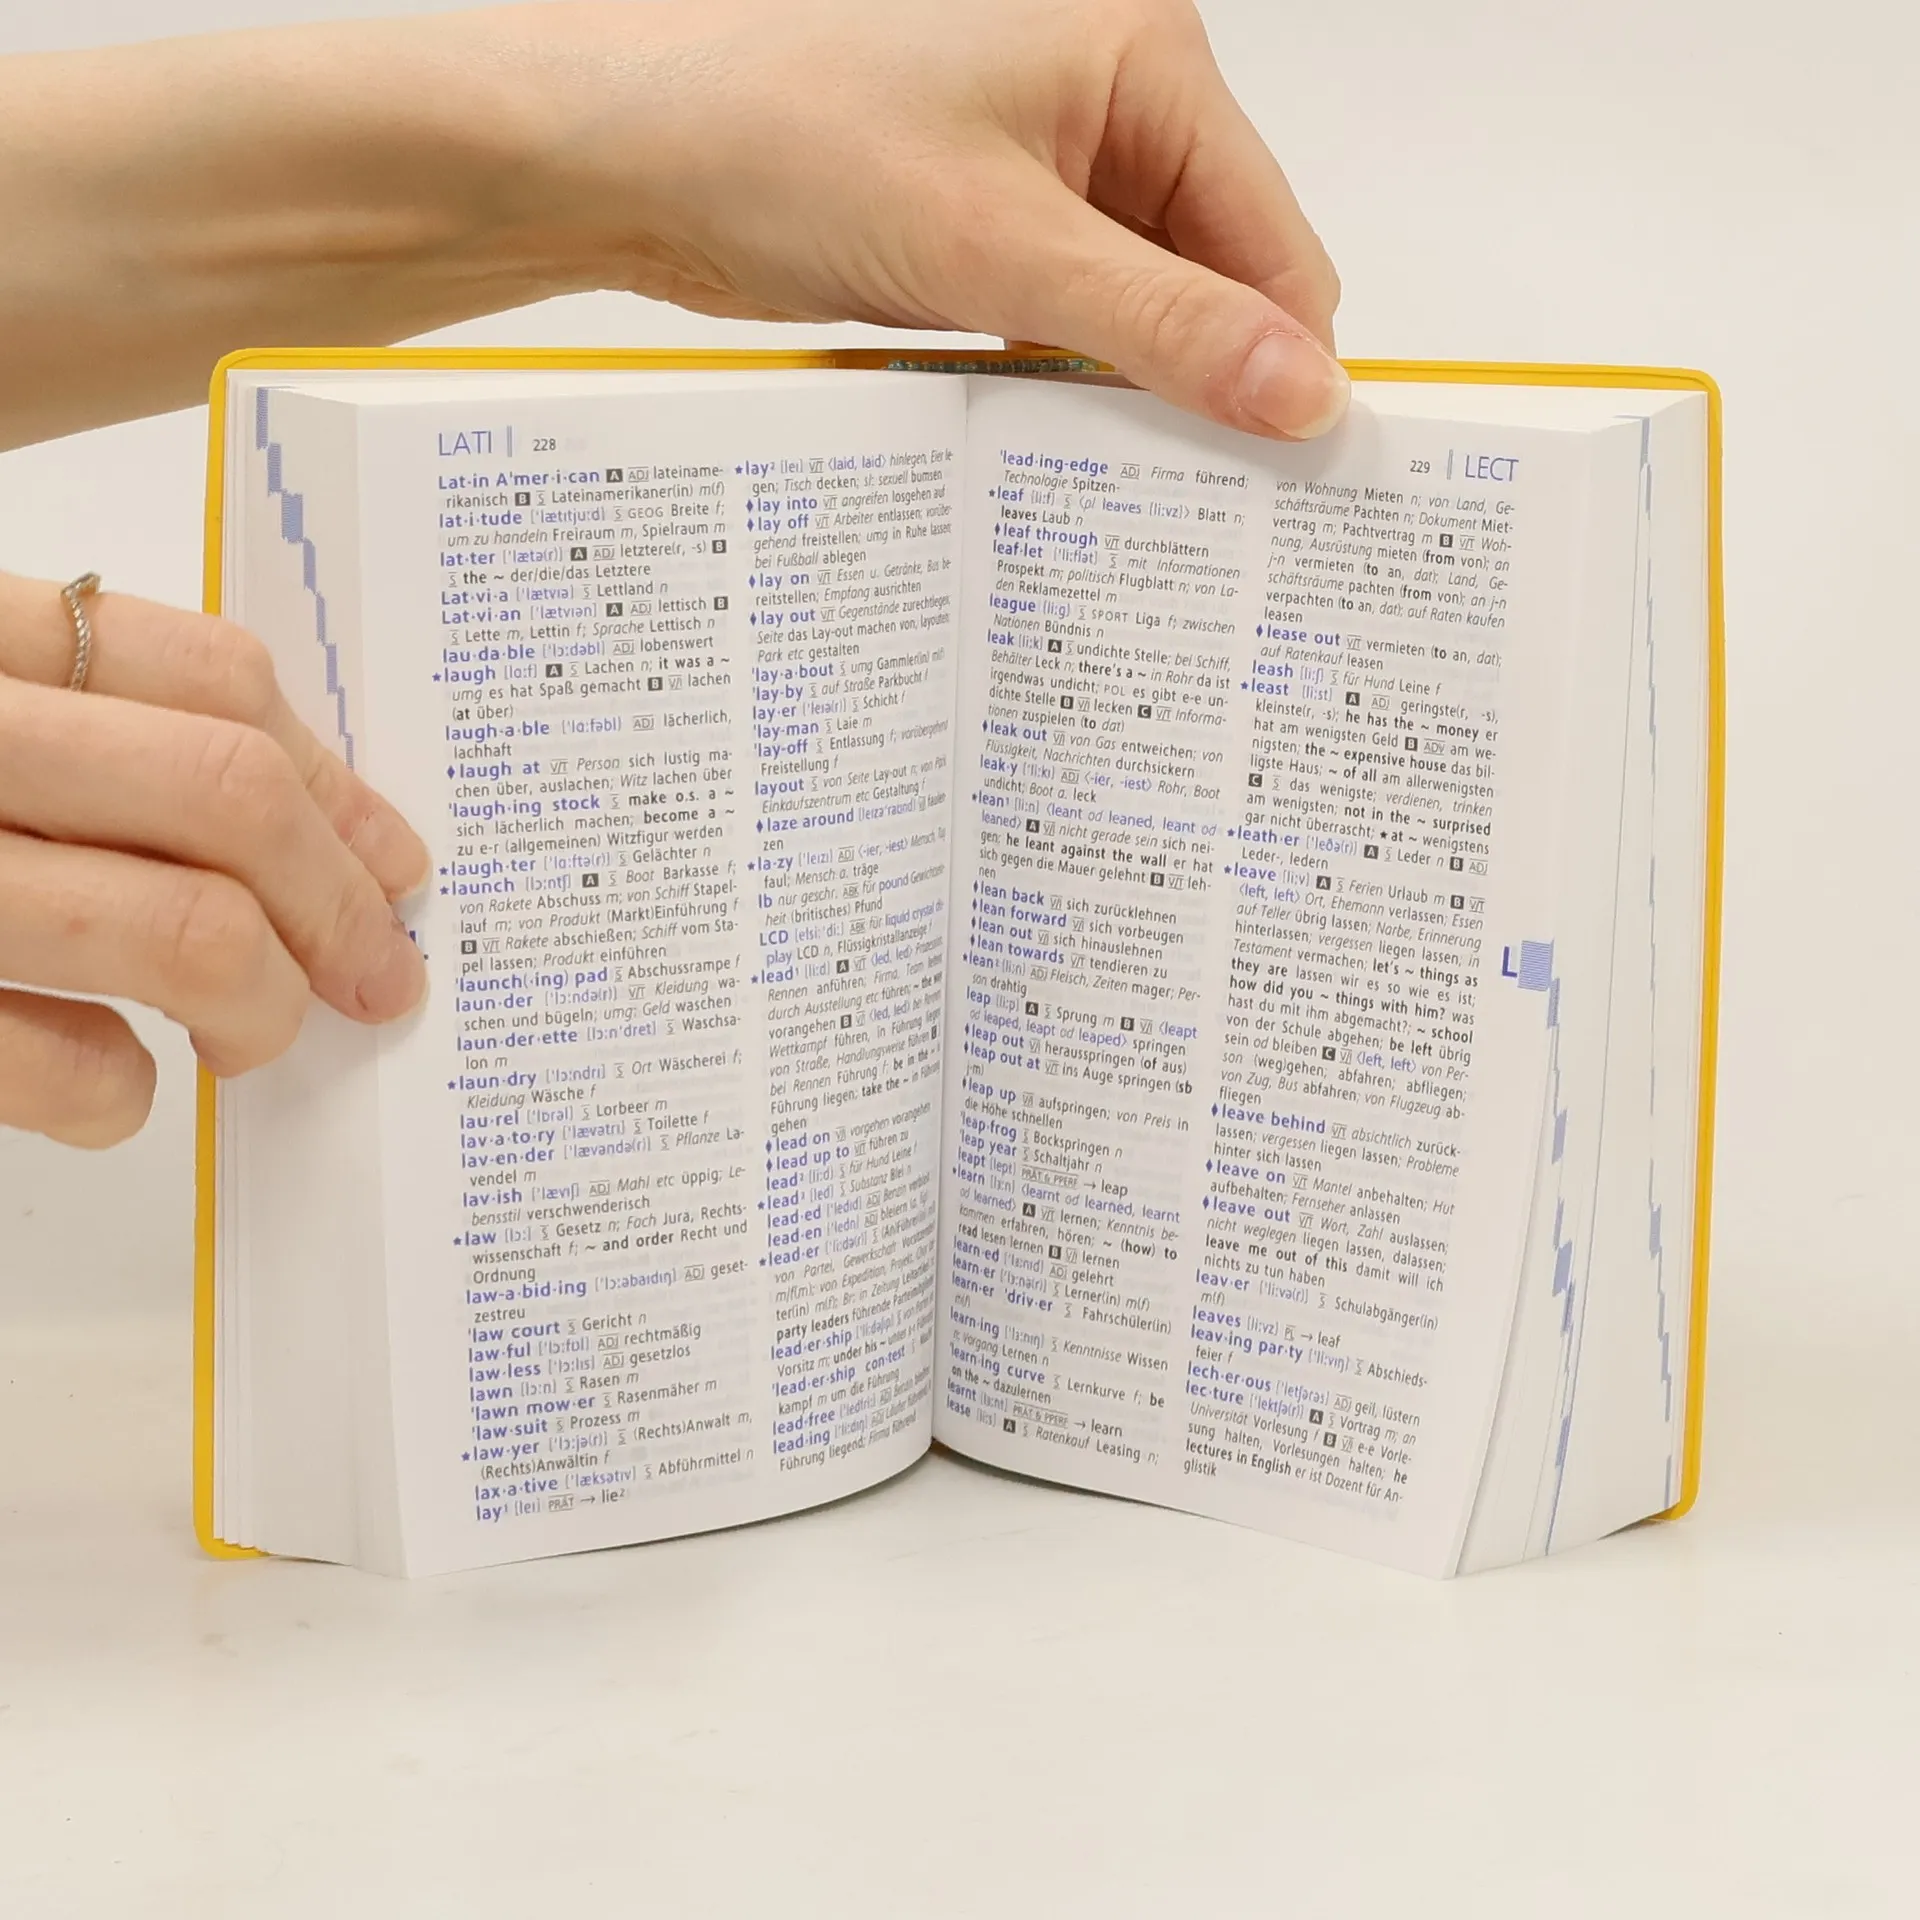 LATI 228
Lat·in A'mer·i·can A ADJ lateiname-
rikanisch B S Lateinamerikaner(in) m(f)
lat·i·tude ['lætɪtjuːd] S GEOG Breite f;
um zu handeln Freiraum m, Spielraum m
lat·ter ['lætə(r)] A ADJ letztere(r, -s) B
S the ~ der/die/das Letztere
Lat·vi·a ['lætvɪə] S Lettland n
Lat·vi·an ['lætvɪən] A ADJ lettisch B
S Lette m, Lettin f; Sprache Lettisch n
lau·da·ble ['lɔːdəbl] ADJ lobenswert
★laugh [lɑːf] A S Lachen n; it was a ~
umg es hat Spaß gemacht B V/I lachen
(at über)
laugh·a·ble ['lɑːfəbl] ADJ lächerlich,
lachhaft
♦laugh at V/T Person sich lustig ma-
chen über, auslachen; Witz lachen über
'laugh·ing stock S make o.s. a ~
sich lächerlich machen; become a ~
zu e-r (allgemeinen) Witzfigur werden
★laugh·ter ['lɑːftə(r)] S Gelächter n
★launch [lɔːntʃ] A S Boot Barkasse f;
von Rakete Abschuss m; von Schiff Stapel-
lauf m; von Produkt (Markt)Einführung f
B V/T Rakete abschießen; Schiff vom Sta-
pel lassen; Produkt einführen
'launch(·ing) pad S Abschussrampe f
laun·der ['lɔːndə(r)] V/T Kleidung wa-
schen und bügeln; umg: Geld waschen
laun·der·ette [lɔːn'dret] S Waschsa-
lon m
★laun·dry ['lɔːndrɪ] S Ort Wäscherei f;
Kleidung Wäsche f
lau·rel ['lɒrəl] S Lorbeer m
lav·a·to·ry ['lævətrɪ] S Toilette f
lav·en·der ['lævəndə(r)] S Pflanze La-
vendel m
lav·ish ['lævɪʃ] ADJ Mahl etc üppig; Le-
bensstil verschwenderisch
★law [lɔː] S Gesetz n; Fach Jura, Rechts-
wissenschaft f; ~ and order Recht und
Ordnung
law-a·bid·ing ['lɔːəbaɪdɪŋ] ADJ geset-
zestreu
'law court S Gericht n
law·ful ['lɔːfʊl] ADJ rechtmäßig
law·less ['lɔːlɪs] ADJ gesetzlos
lawn [lɔːn] S Rasen m
'lawn mow·er S Rasenmäher m
'law·suit S Prozess m
★law·yer ['lɔːjə(r)] S (Rechts)Anwalt m,
(Rechts)Anwältin f
lax·a·tive ['læksətɪv] S Abführmittel n
lay¹ [leɪ] PRÄT → lie²
★lay² [leɪ] V/T ⟨laid, laid⟩ hinlegen, Eier le-
gen; Tisch decken; sl: sexuell bumsen
♦lay into V/T angreifen losgehen auf
♦lay off V/T Arbeiter entlassen; vorüber-
gehend freistellen; umg in Ruhe lassen;
bei Fußball ablegen
♦lay on V/T Essen u. Getränke, Bus be-
reitstellen; Empfang ausrichten
♦lay out V/T Gegenstände zurechtlegen;
Seite das Lay-out machen von, layouten;
Park etc gestalten
'lay·a·bout S umg Gammler(in) m(f)
'lay-by S auf Straße Parkbucht f
lay·er ['leɪə(r)] S Schicht f
'lay·man S Laie m
'lay-off S Entlassung f; vorübergehend
Freistellung f
layout S von Seite Lay-out n; von Park
Einkaufszentrum etc Gestaltung f
♦laze around [leɪzə'raʊnd] V/I faulen
zen
★la·zy ['leɪzɪ] ADJ ⟨-ier, -iest⟩ Mensch, Tag
faul; Mensch a. träge
lb nur geschr. ABK für pound Gewichtsein-
heit (britisches) Pfund
LCD [elsiː'diː] ABK für liquid crystal di
play LCD n, Flüssigkristallanzeige f
★lead¹ [liːd] A V/T ⟨led, led⟩ Prozession,
Rennen anführen; Firma, Team leiten
durch Ausstellung etc führen; ~ the way
vorangehen B V/I ⟨led, led⟩ bei Rennen
Wettkampf führen, in Führung liegen
von Straße, Handlungsweise führen
bei Rennen Führung f; be in the ~ in
Führung liegen; take the ~ in Führung
gehen
♦lead on V/I vorgehen vorangehen
♦lead up to V/T führen zu
lead² [liːd] S für Hund Leine f
★lead³ [led] S Substanz Blei n
lead·ed ['ledɪd] ADJ Benzin verbleit
lead·en ['ledn] ADJ bleiern
★lead·er ['liːdə(r)] S (An)Führer(in)
von Partei, Gewerkschaft Vorsitzende(r)
m/f(m); von Expedition, Projekt, Chor
ter(in) m(f); Br: in Zeitung Leitartikel
party leaders führende Parteimitglieder
lead·er·ship ['liːdəʃɪp] S von Partei
Vorsitz m; under his ~ unter s-r Führung
'lead·er·ship con·test S
kampf m um die Führung
lead-free ['ledfriː] ADJ Benzin bleifrei
lead·ing ['liːdɪŋ] ADJ Läufer führend
Führung liegend; Firma führend
229 LECT
'lead·ing-edge ADJ Firma führend;
Technologie Spitzen-
★leaf [liːf] S ⟨pl leaves [liːvz]⟩ Blatt n;
leaves Laub n
♦leaf through V/T durchblättern
leaf·let ['liːflət] S mit Informationen
Prospekt m; politisch Flugblatt n; von La-
den Reklamezettel m
league [liːg] S SPORT Liga f; zwischen
Nationen Bündnis n
leak [liːk] A S undichte Stelle; bei Schiff,
Behälter Leck n; there's a ~ in Rohr da ist
irgendwas undicht; POL es gibt e-e un-
dichte Stelle B V/I lecken C V/T Informa-
tionen zuspielen (to dat)
♦leak out V/I von Gas entweichen; von
Flüssigkeit, Nachrichten durchsickern
leak·y ['liːkɪ] ADJ ⟨-ier, -iest⟩ Rohr, Boot
undicht; Boot a. leck
★lean¹ [liːn] ⟨leant od leaned, leant od
leaned⟩ A V/I nicht gerade sein sich nei-
gen; he leant against the wall er hat
sich gegen die Mauer gelehnt B V/T leh-
nen
♦lean back V/I sich zurücklehnen
♦lean forward V/I sich vorbeugen
♦lean out V/I sich hinauslehnen
♦lean towards V/T tendieren zu
★lean² [liːn] ADJ Fleisch, Zeiten mager; Per-
son drahtig
leap [liːp] A S Sprung m B V/I ⟨leapt
od leaped, leapt od leaped⟩ springen
♦leap out V/I herausspringen (of aus)
♦leap out at V/T ins Auge springen (sb
j-m)
♦leap up V/I aufspringen; von Preis in
die Höhe schnellen
'leap·frog S Bockspringen n
'leap year S Schaltjahr n
leapt [lept] PRÄT & PPERF → leap
★learn [lɜːn] ⟨learnt od learned, learnt
od learned⟩ A V/T lernen; Kenntnis be-
kommen erfahren, hören; ~ (how) to
read lesen lernen B V/I lernen
learn·ed ['lɜːnɪd] ADJ gelehrt
learn·er ['lɜːnə(r)] S Lerner(in) m(f)
learn·er 'driv·er S Fahrschüler(in)
m(f)
learn·ing ['lɜːnɪŋ] S Kenntnisse Wissen
n; Vorgang Lernen n
'learn·ing curve S Lernkurve f; be
on the ~ dazulernen
learnt [lɜːnt] PRÄT & PPERF → learn
lease [liːs] A S Ratenkauf Leasing n;
von Wohnung Mieten n; von Land, Ge-
schäftsräume Pachten n; Dokument Miet-
vertrag m; Pachtvertrag m B V/T Woh-
nung, Ausrüstung mieten (from von); an
j-n vermieten (to an, dat); Land, Ge-
schäftsräume pachten (from von); an j-n
verpachten (to an, dat); auf Raten kaufen
leasen
♦lease out V/T vermieten (to an, dat);
auf Ratenkauf leasen
leash [liːʃ] S für Hund Leine f
★least [liːst] A ADJ geringste(r, -s),
kleinste(r, -s); he has the ~ money er
hat am wenigsten Geld B ADV am we-
nigsten; the ~ expensive house das bil-
ligste Haus; ~ of all am allerwenigsten
C S das wenigste; verdienen, trinken
am wenigsten; not in the ~ surprised
gar nicht überrascht; ★at ~ wenigstens
★leath·er ['leðə(r)] A S Leder n B ADJ
Leder-, ledern
★leave [liːv] A S Ferien Urlaub m B V/T
⟨left, left⟩ Ort, Ehemann verlassen; Essen
auf Teller übrig lassen; Narbe, Erinnerung
hinterlassen; vergessen liegen lassen; in
Testament vermachen; let's ~ things as
they are lassen wir es so wie es ist;
how did you ~ things with him? was
hast du mit ihm abgemacht?; ~ school
von der Schule abgehen; be left übrig
sein od bleiben C V/I ⟨left, left⟩ von Per-
son (weg)gehen; abfahren; abfliegen;
von Zug, Bus abfahren; von Flugzeug ab-
fliegen
♦leave behind V/T absichtlich zurück-
lassen; vergessen liegen lassen; Probleme
hinter sich lassen
♦leave on V/T Mantel anbehalten; Hut
aufbehalten; Fernseher anlassen
♦leave out V/T Wort, Zahl auslassen;
nicht weglegen liegen lassen, dalassen;
leave me out of this damit will ich
nichts zu tun haben
leav·er ['liːvə(r)] S Schulabgänger(in)
m(f)
leaves [liːvz] PL → leaf
leav·ing par·ty ['liːvɪŋ] S Abschieds-
feier f
lech·er·ous ['letʃərəs] ADJ geil, lüstern
lec·ture ['lektʃə(r)] A S Vortrag m; an
Universität Vorlesung f B V/I e-e Vorle-
sung halten, Vorlesungen halten; he
lectures in English er ist Dozent für An-
glistik
L